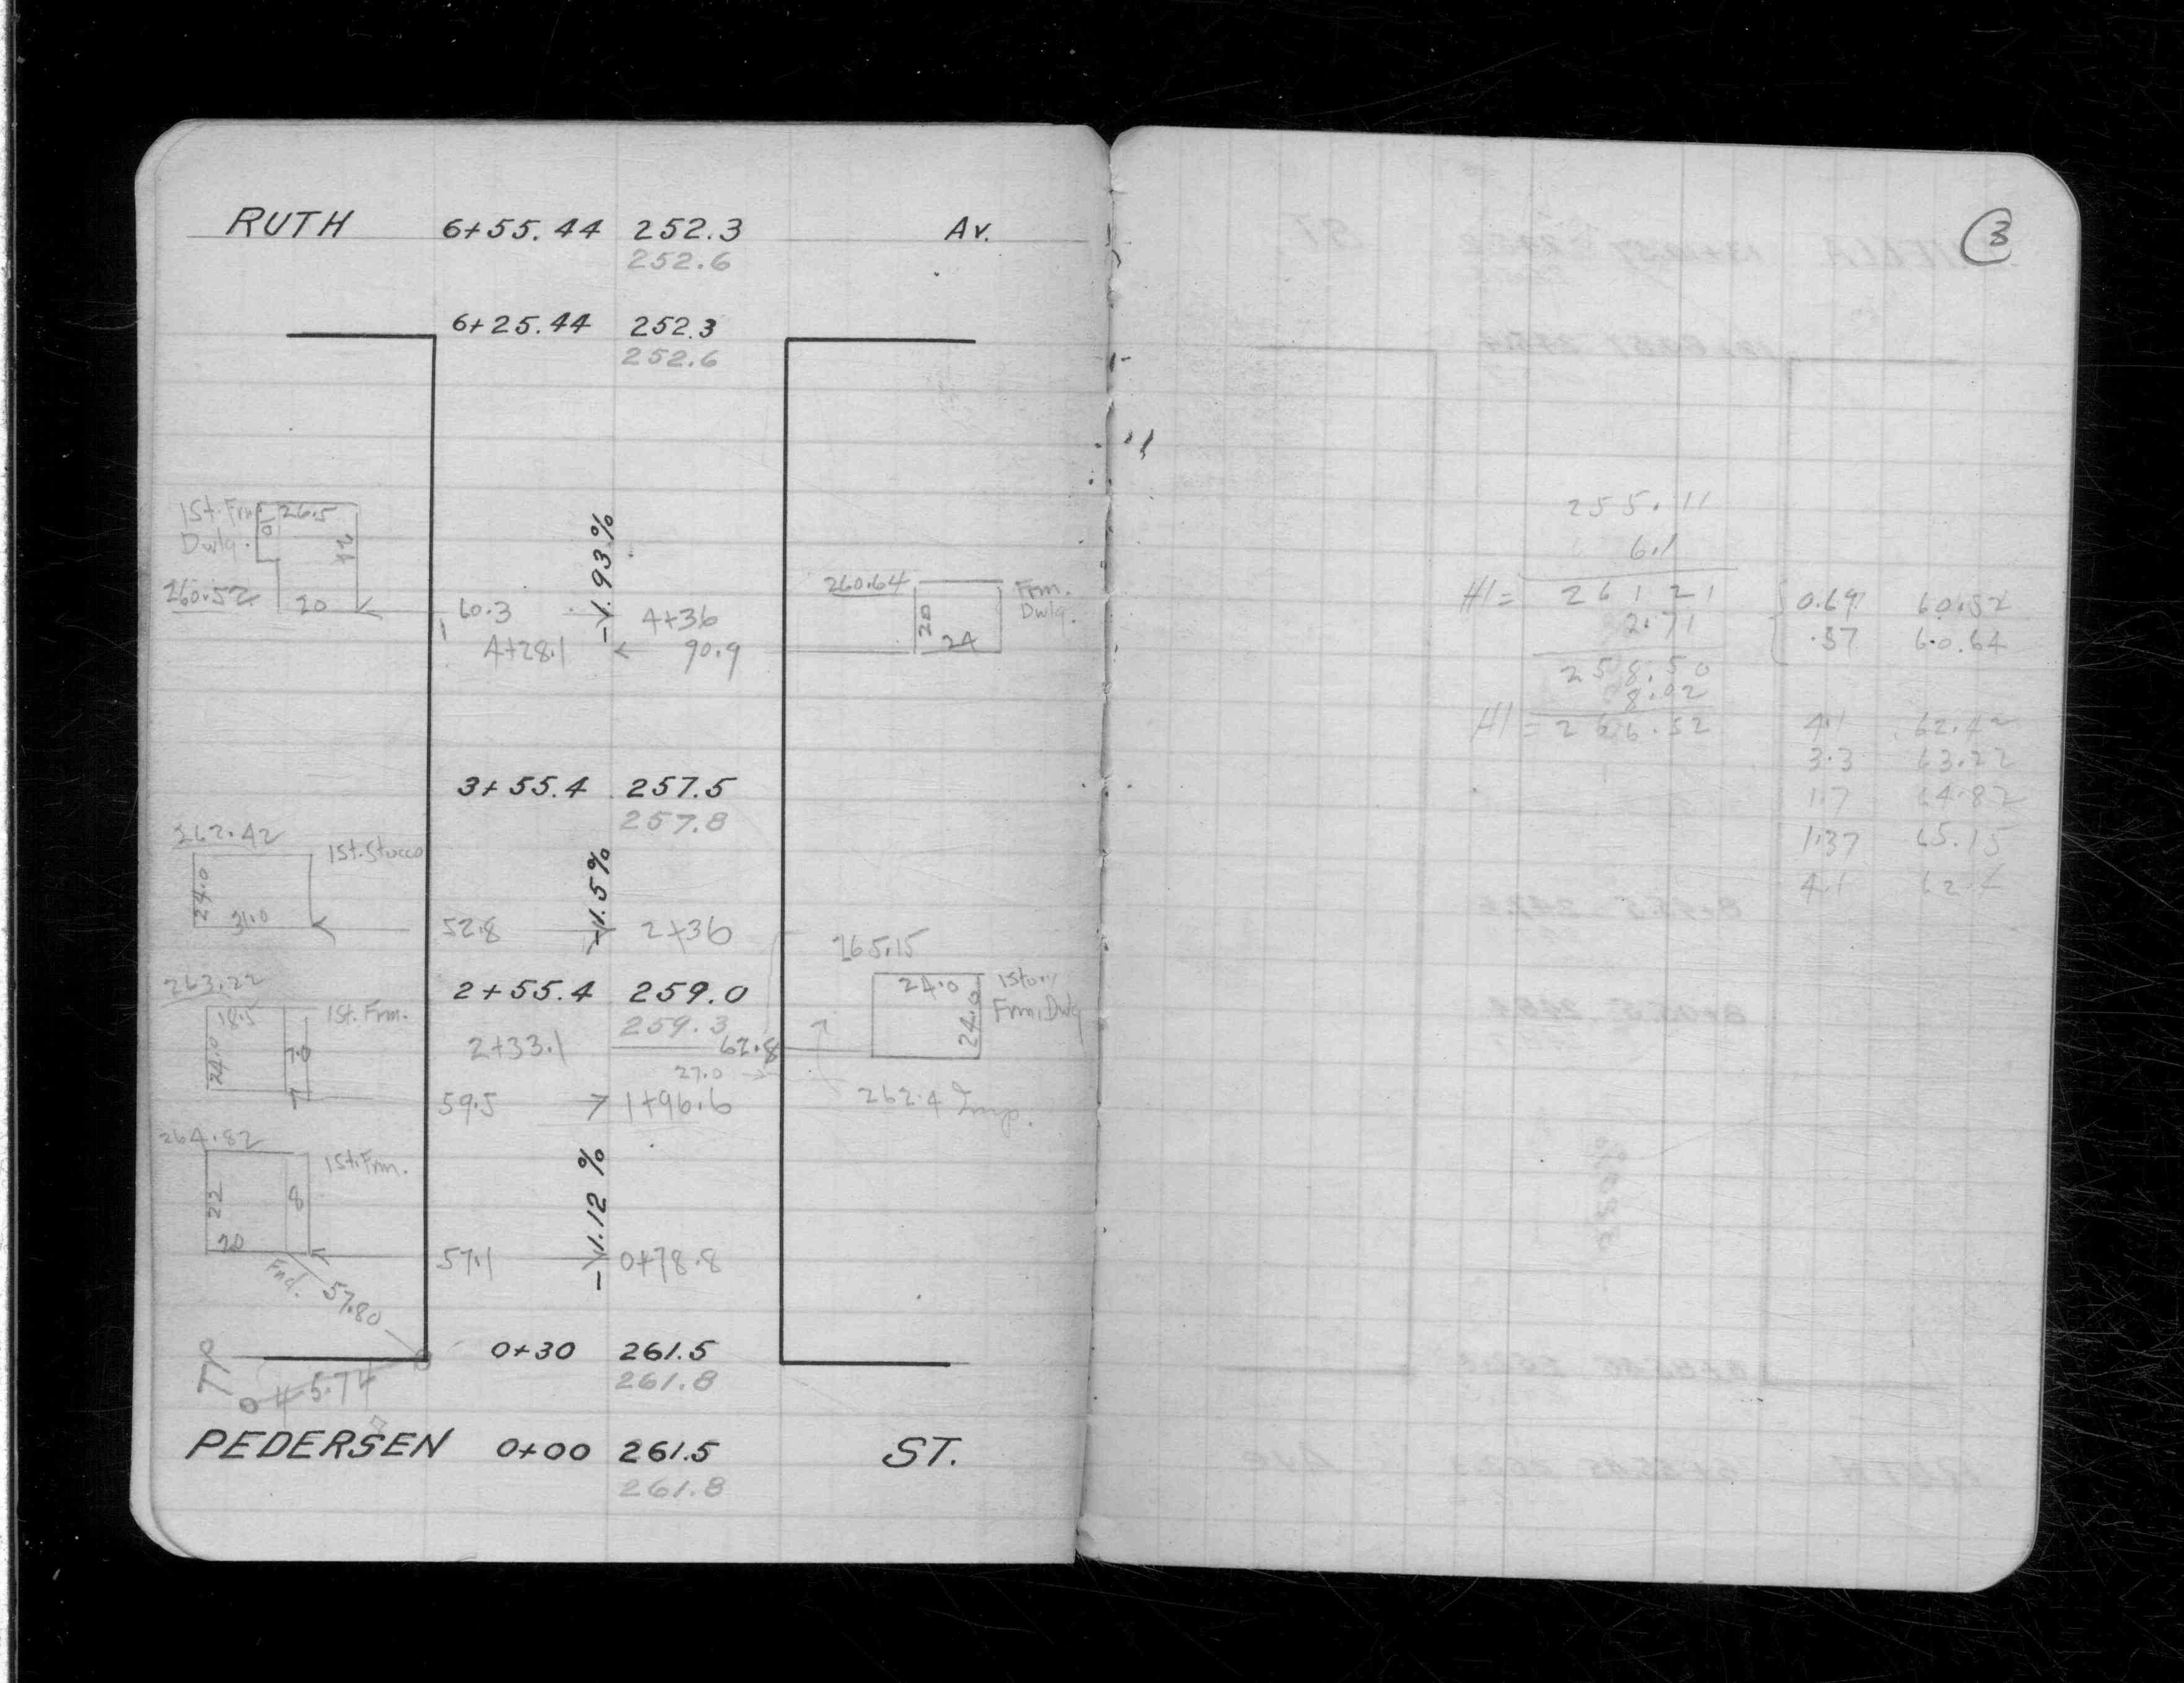 RUTH 6+55.44 252.3 Av.
252.6
6+25.44 252.3
252.6
1St. Frm. 26.5
Dwlg.
260.52 20
60.3 4+36
4+28.1 90.9
-1.93%
260.64 Frm.
Dwlg.
20
24
3+55.4 257.5
257.8
262.42 1St. Stucco
24.0
31.0
52.8 2+36
-1.5%
265.15
24.0 1Story
Frm. Dwlg
24.0
263.22
18.5 1St. Frm.
24.0 7.0
2+55.4 259.0
259.3
2+33.1 62.8
27.0
59.5 1+96.6
262.4 Imp.
264.82
1St. Frm.
22 8
20
-1.12 %
57.1 0+78.8
Fnd. 57.80
0+30 261.5
261.8
TP
45.74
PEDERSEN 0+00 261.5 ST.
261.8
3
255.11
6.1
HI = 261 21 0.69 60.52
2.71 .57 60.64
258.50
8.02
HI = 266.52 4.1 62.42
3.3 63.22
1.7 64.82
1.37 65.15
4.1 62.4